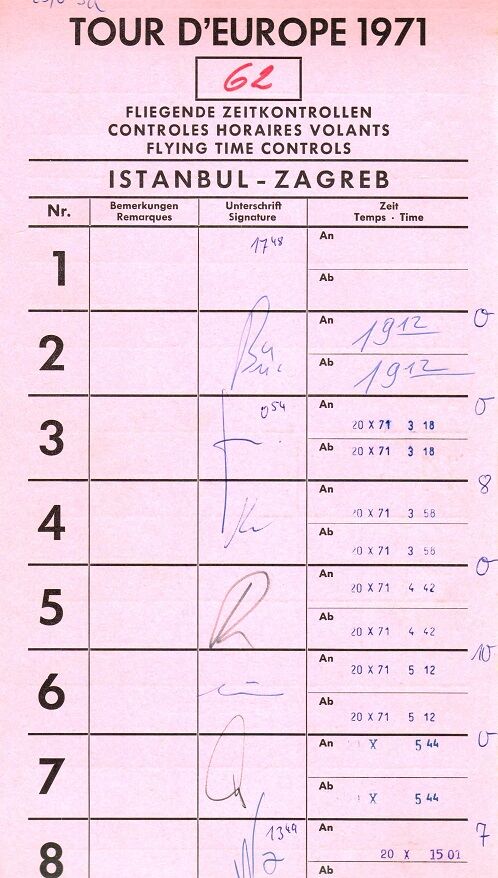 TOUR D'EUROPE 1971
62
FLIEGENDE ZEITKONTROLLEN
CONTROLES HORAIRES VOLANTS
FLYING TIME CONTROLS
ISTANBUL - ZAGREB
Nr. Bemerkungen Remarques Unterschrift Signature Zeit Temps · Time
1 17 48 An
Ab
0
2 An 19 12
Ab 19 12
0
3 0 54 An 20 X 71 3 18
Ab 20 X 71 3 18
8
4 An 20 X 71 3 58
Ab 20 X 71 3 58
0
5 An 20 X 71 4 42
Ab 20 X 71 4 42
10
6 An 20 X 71 5 12
Ab 20 X 71 5 12
0
7 An X 5 44
Ab X 5 44
7
8 13 49 An 20 X 15 01
Ab